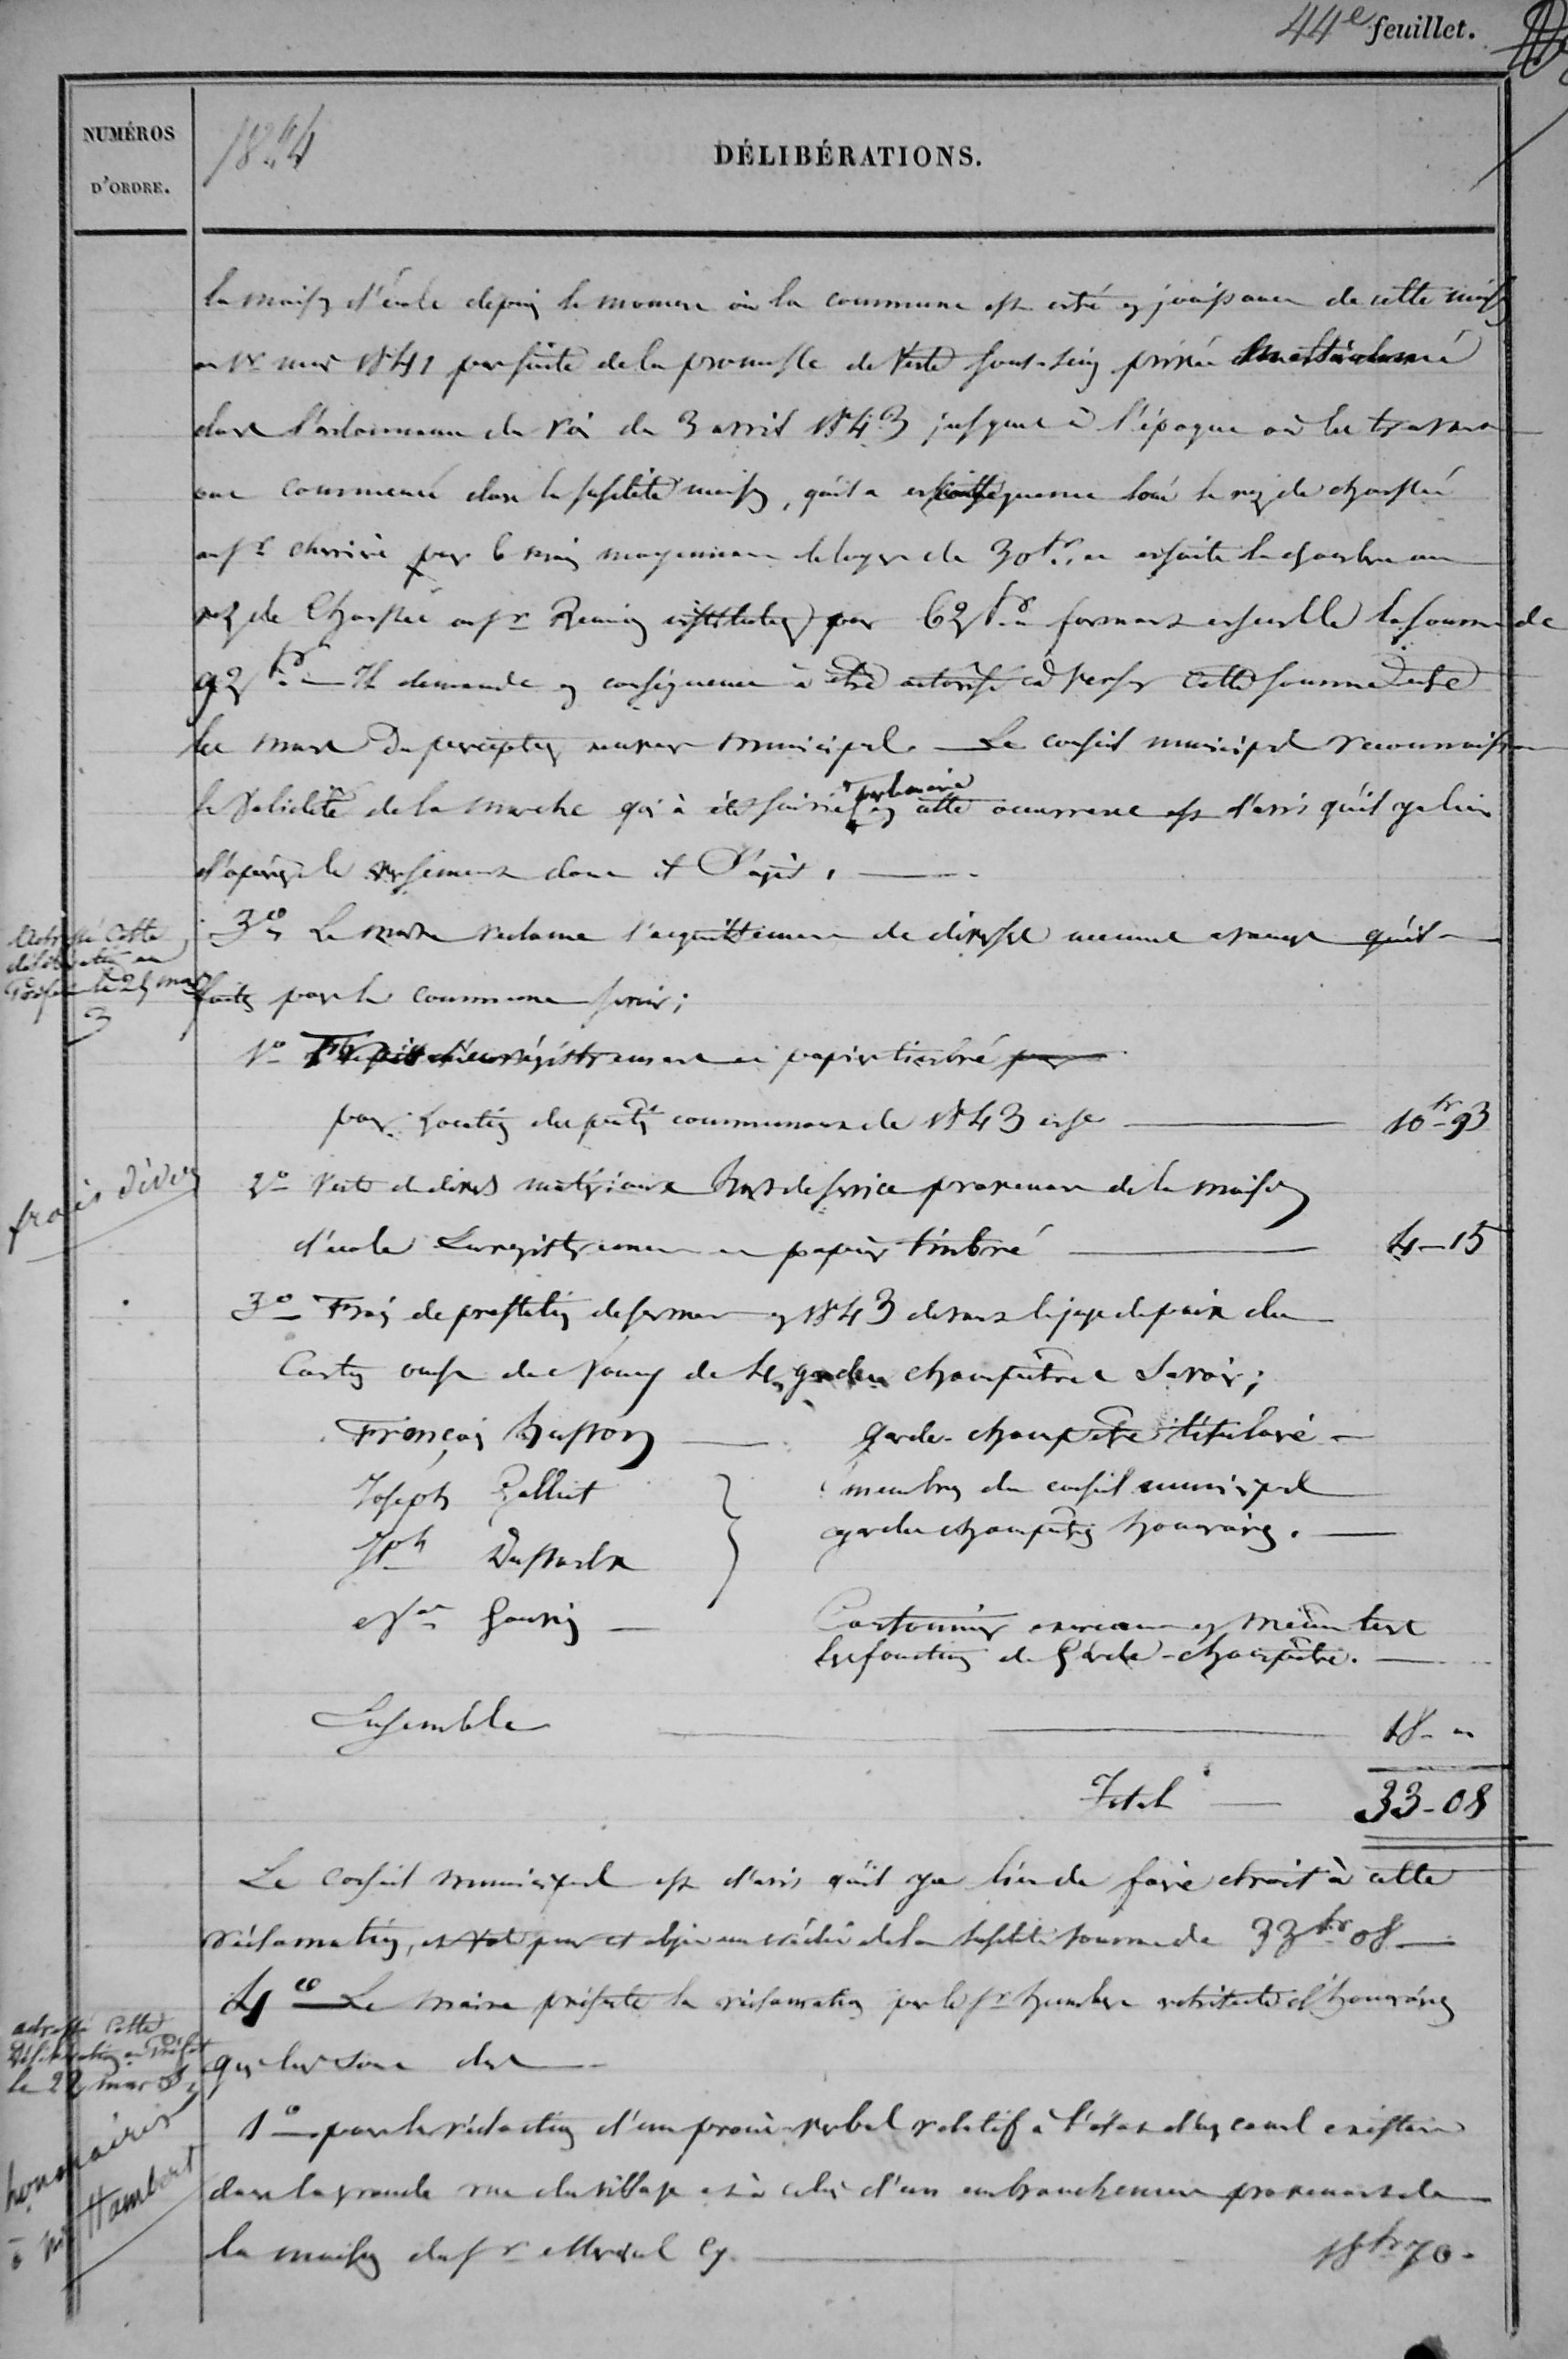 44e feuillet.
NUMÉROS
D'ORDRE.
1844
DÉLIBÉRATIONS.
la maison d'école depuis le moment où la commune est entré en jouissance de cette maison
au 1er mars 1841 par suite de la promesse de vente sous-seing privée
dans l'ordonnance du Roi du 3 avril 1843 jusque à l'époque où les travaux
ont commencé dans la susdite maison, qu'il a en conséquence loué le rez de chaussée
au sr pour 6 mois moyennant le loyer de 30 fr. et ensuite la chambre au
rez de chaussée au sr Remy instituteur pour 62 fr. formant ensemble la somme de
92 fr. Il demande en conséquence à être autorisé à verser cette somme entre
les mains du percepteur receveur municipal. Le conseil municipal reconnaissant
la validité de la marche qui à été suivie par le maire en cette occurrence est d'avis qu'il y a lieu
d'opérer le versement dont il s'agit.
Adressé cette
délibération au
Préfet le 25 mars
3
3o Le maire réclame l'acquittement de diverses menues avances qu'il a
faites pour la commune savoir;
1o Frais d'enregistrement et papier timbré
pour location des communaux de 1843 10 fr 93
frais divers
2o Vente de divers matériaux hors de service provenant de la maison
d'école Enregistrement et papier timbré 4-15
3o Frais de prestation de serment en 1843 devant le juge de paix du
Canton ouest de Nancy de 4 gardes champêtres Savoir;
François Husson garde-champêtre titulaire
Joseph Galliot
Jph
membres du conseil municipal
gardes champêtres honoraires.
et Gouvy
Cantonnier exerçant en même tems
les fonctions de Garde-champêtre.
Ensemble 18- "
Total 33-08
Le conseil municipal est d'avis qu'il y a lieu de faire droit à cette
réclamation, et vote pour cet objet un crédit de la susdite somme de 33 fr 08
4o Le maire présente la réclamation par le sr Humbert architecte d'honoraires
adressé cette
Délibération au Préfet
le 22 mars
qui lui sont dus
honoraires
à Mr Humbert
1o pour la rédaction d'un procès-verbal relatif à l'état d'un canal existant
dans la grande rue du village et à celui d'un embranchement provenant de
la maison du sr 18 fr 70